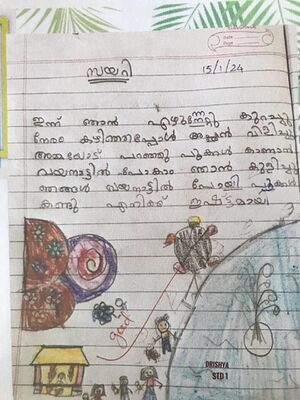 Date
Page
ഡയറി 15/1/24
ഇന്ന് ഞാൻ എഴുന്നേറ്റു കുറച്ചു
നേരം കഴിഞ്ഞപ്പോൾ അച്ഛൻ വിളിച്ചു
അമ്മയോട് പറഞ്ഞു പൂക്കൾ കാണാൻ
വയനാട്ടിൽ പോകാം ഞാൻ കുളിച്ചു
ഞങ്ങൾ വയനാട്ടിൽ പോയി പൂക്കൾ
കണ്ടു എനിക്ക് ഇഷ്ട്ടമായി
good
DRISHYA
STD 1